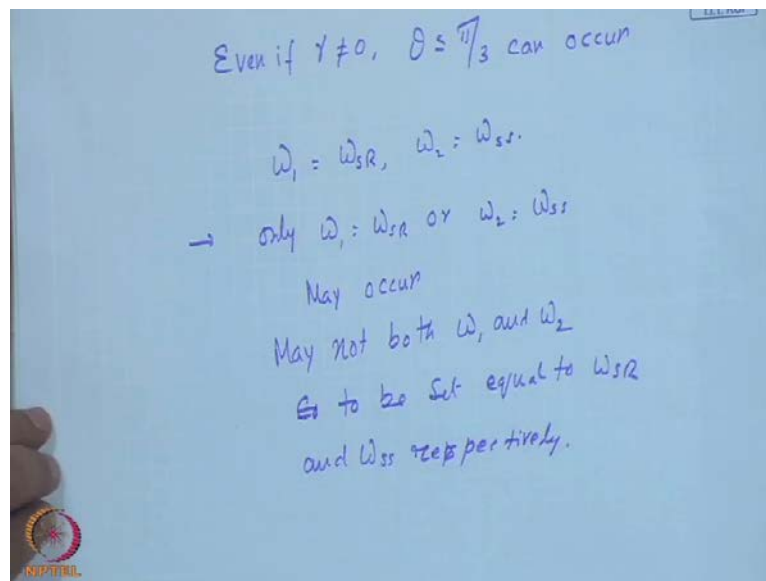 Even if γ ≠ 0, θ ≤ π/3 can occur
ω₁ = ω_SR, ω₂ = ω_SS.
→ only ω₁ = ω_SR or ω₂ = ω_SS
May occur
May not both ω₁ and ω₂
to be set equal to ω_SR
and ω_SS respectively.
NPTEL